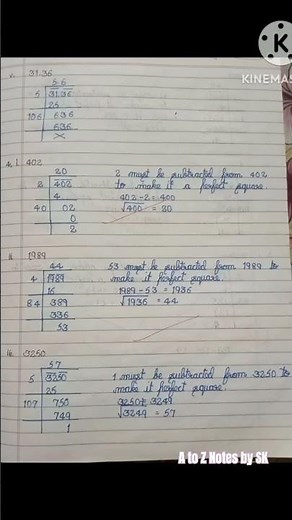 KINEMAS
c. 31.36
5 6
5 31 36
25
106 6 36
6 36
×
4. i. 402
20
2 402
4
40 02
0
2
2 must be subtracted from 402
to make it a perfect square.
402-2=400
√400 = 20
ii. 1989
44
4 1989
16
84 389
336
53
53 must be subtracted from 1989 to
make it perfect square
1989-53 = 1936
√1936 = 44
iii. 3250
57
5 3250
25
107 750
749
1
1 must be subtracted from 3250 to
make it perfect square
√3249 = 57
A to Z Notes by SK